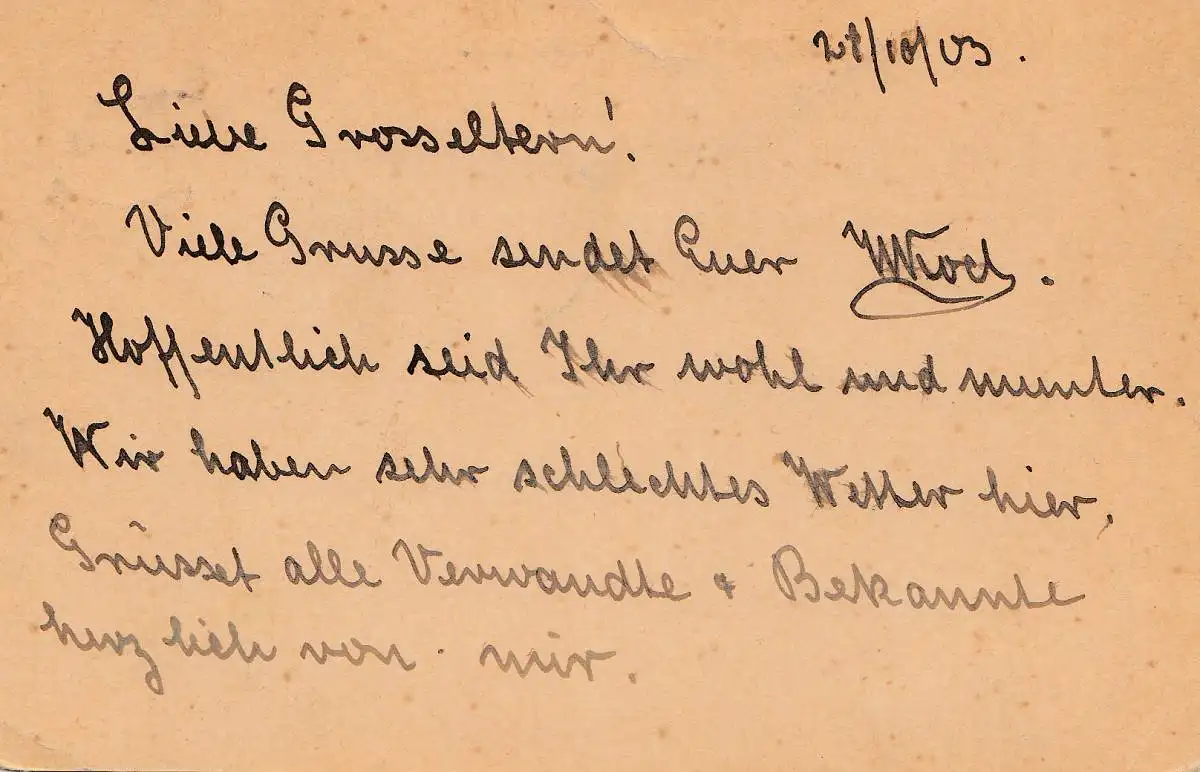 28/10/03.
Liebe Grosseltern!
Viele Grusse sendet Euer WKoch.
Hoffentlich seid Ihr wohl und munter.
Wir haben sehr schlechtes Wetter hier.
Grüsset alle Verwandte & Bekannte
herzlich von mir.